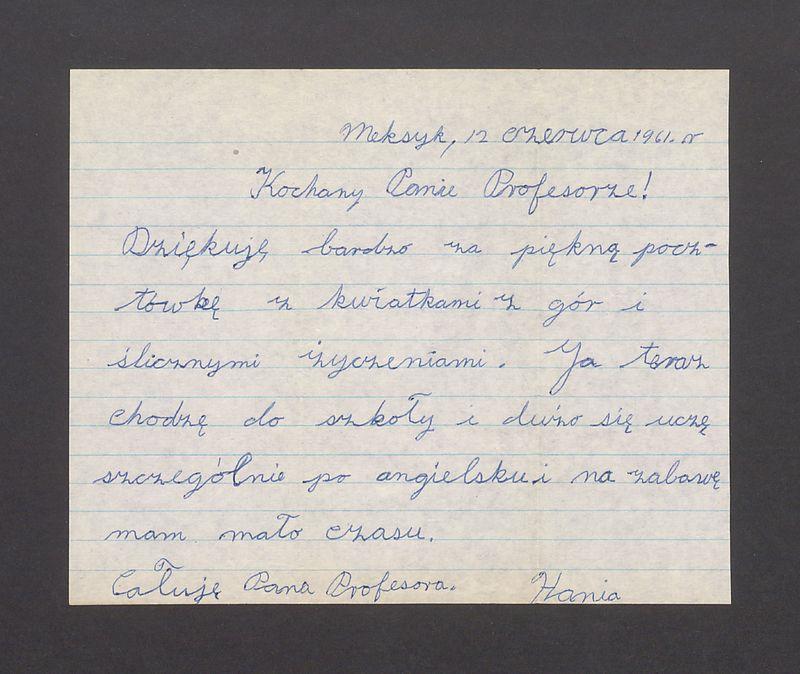 Meksyk, 12 czerwca 1961. r
Kochany Panie Profesorze!
Dziękuję bardzo za piękną pocz-
tówkę z kwiatkami z gór i
ślicznymi życzeniami. Ja teraz
chodzę do szkoły i dużo się uczę
szczególnie po angielsku i na zabawę
mam mało czasu.
Całuję Pana Profesora. Hania